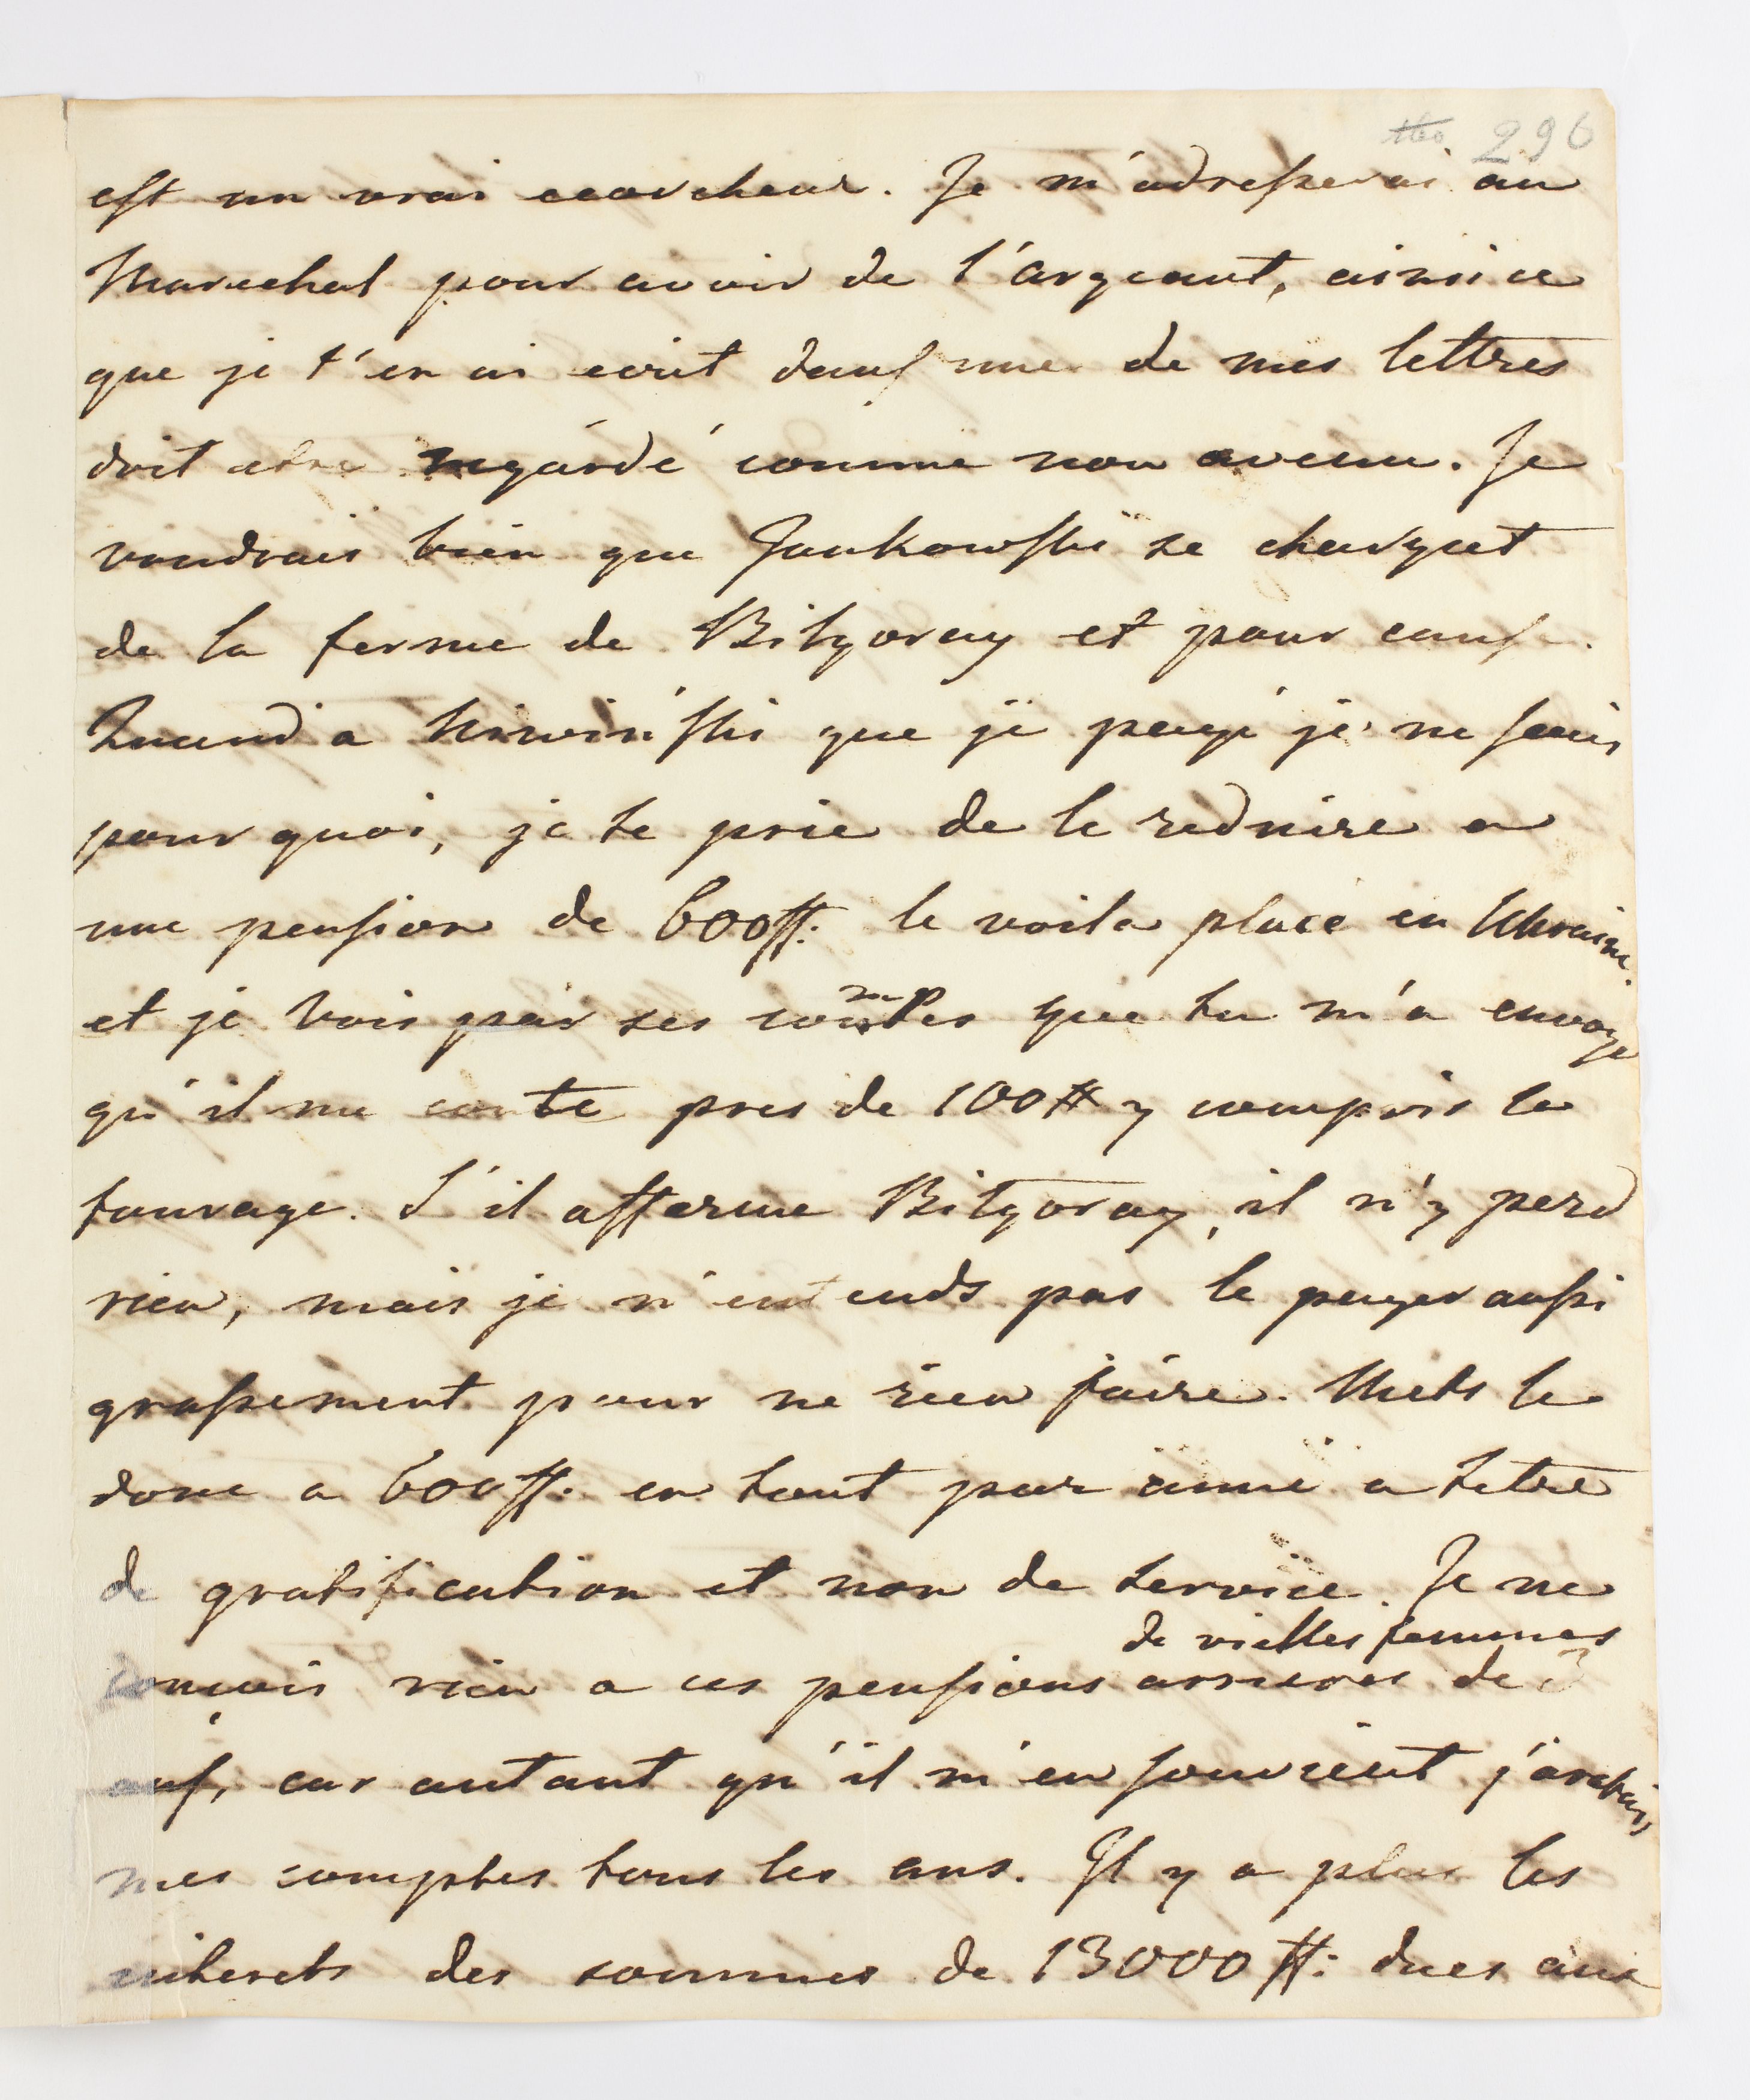 296
est un vrai ecorcheur. Je m'adresserai au
Marechal pour avoir de l'argeant, ainsi ce
que je t'en ai ecrit dans une de mes lettres
doit etre regardé comme non avenu. Je
voudrais bien que Jankowski se chargeat
de la ferme de Bilgoray et pour cause.
Quand a que je paye je ne sais
pourquoi, je te prie de le reduire a
une pension de 600ff: le voila placé en Ukraine.
et je vois par ses comptes que tu m'a envoye
qu'il me coute pres de 100# y compris le
fourage. S'il afferme Bilgoray, il n'y perd
rien, mais je n'entends pas le payer aussi
grassement pour ne rien faire. Mets le
donc a 600ff: en tout par anné a titre
de gratification et non de service. Je ne
de vielles femmes
conçois rien a ces pensions arrieres de 3
ans, car autant qu'il m'en souvient j'arretais
mes comptes tous les ans. Il y a plus les
interets des sommes de 13000 ff: dues aux